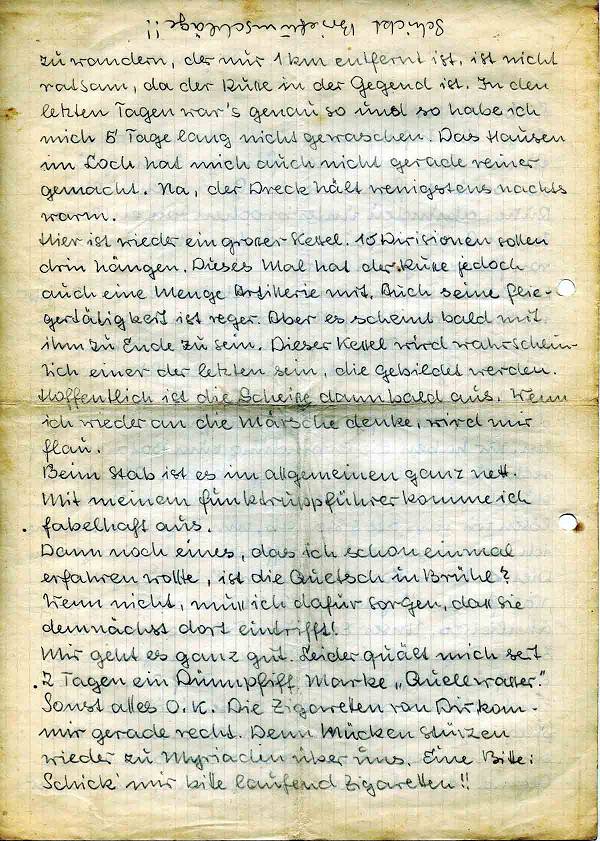 Schickt Briefumschläge!!
zu wandern, der nur 1 km entfernt ist, ist nicht
ratsam, da der Russe in der Gegend ist. In den
letzten Tagen war's genau so und so habe ich
mich 5 Tage lang nicht gewaschen. Das Hausen
im Loch hat mich auch nicht gerade reiner
gemacht. Na, der Dreck hält wenigstens nachts
warm.
Hier ist wieder ein grosser Kessel. 10 Divisionen sollen
drin hängen. Dieses Mal hat der Russe jedoch
auch eine Menge Artillerie mit. Auch seine Flie-
gertätigkeit ist reger. Aber es scheint bald mit
ihm zu Ende zu sein. Dieser Kessel wird wahrschein-
lich einer der letzten sein, die gebildet werden.
Hoffentlich ist die Scheiße dann bald aus. Wenn
ich wieder an die Märsche denke, wird mir
flau.
Beim Stab ist es im allgemeinen ganz nett.
Mit meinem Funktruppführer komme ich
fabelhaft aus.
Dann noch eines, das ich schon einmal
erfahren wollte, ist die Quetsch in Brühl?
Wenn nicht, muss ich dafür sorgen, dass sie
demnächst dort eintrifft!
Mir geht es ganz gut. Leider quält mich seit
2 Tagen ein Dünnpfiff Marke „Quellwasser."
Sonst alles O.K. Die Zigaretten von Dir kom-
mir gerade recht. Denn Mücken stürzen
wieder zu Myriaden über uns. Eine Bitte:
Schick' mir bitte laufend Zigaretten!!